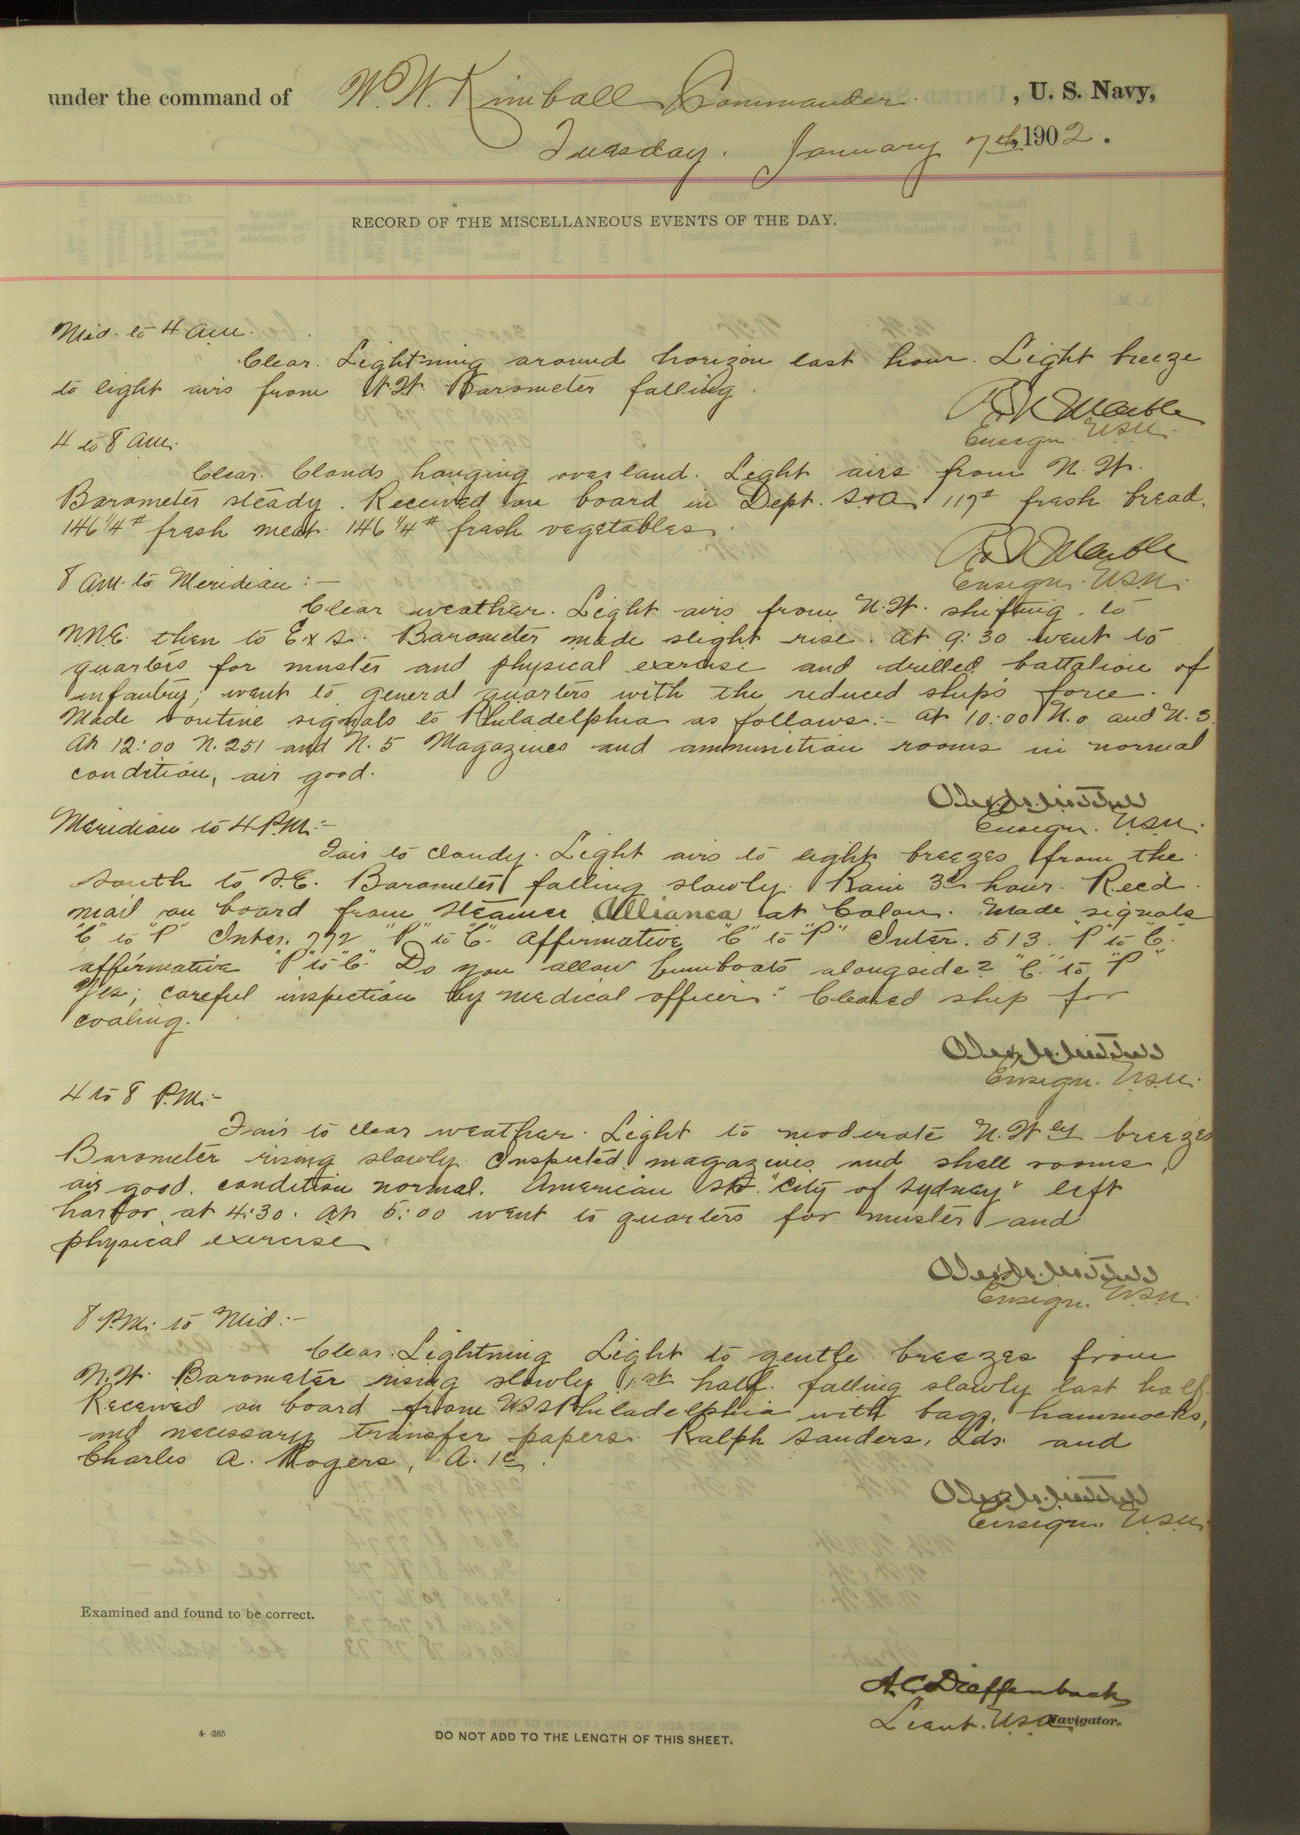 under the command of W. W. Kimball Commander , U. S. Navy,
Tuesday. January 7th, 1902.
RECORD OF THE MISCELLANEOUS EVENTS OF THE DAY.
Mid. to 4 a.m.
Clear. Lightning around horizon last hour. Light breeze
to light airs from N.W. Barometer falling.
Ensign. U.S.N.
4 to 8 a.m.
Clear. Clouds hanging over land. Light airs from N.W.
Barometer steady. Received on board in Dept. S & A 117# fresh bread.
146 1/4# fresh meat. 146 1/4# fresh vegetables.
Ensign. U.S.N.
8 a.m. to Meridian:—
Clear weather. Light airs from N.W. shifting to
NNE. then to E x S. Barometer made slight rise. At 9:30 went to
quarters for muster and physical exercise and drilled battalion of
infantry; went to general quarters with the reduced ship's force.
Made routine signals to Philadelphia as follows:— at 10:00 N.o and N.3.
At 12:00 N.251 and N.5 Magazines and ammunition rooms in normal
condition, air good.
Ensign. U.S.N.
Meridian to 4 P.M:—
Fair to cloudy. Light airs to light breezes from the
south to S.E. Barometer falling slowly. Rain 3d hour. Rec'd
mail on board from steamer Allianca at Colon. Made signals
"C" to "P" Inter. 772 "P" to "C" affirmative "C" to "P" Inter. 513. "P" to "C"
affirmative "P" to "C" Do you allow bumboats alongside? "C" to "P"
Yes; careful inspection by medical officer." Cleared ship for
coaling.
Ensign. U.S.N.
4 to 8 P.M:—
Fair to clear weather. Light to moderate N.W'ly breezes
Barometer rising slowly. Inspected magazines and shell rooms,
air good. condition normal. American str. "City of Sydney" left
harbor at 4:30. At 5:00 went to quarters for muster and
physical exercise
Ensign. U.S.N.
8 P.M. to Mid:—
Clear. Lightning Light to gentle breezes from
N.W. Barometer rising slowly 1st half. falling slowly last half.
Received on board from USS Philadelphia with bags, hammocks,
and necessary transfer papers. Ralph Sanders, Lds. and
Charles A. Rogers, A. 1c.
Ensign. U.S.N.
Examined and found to be correct.
A. C. Dieffenbach
Lieut. U.S.N. Navigator.
4—265
DO NOT ADD TO THE LENGTH OF THIS SHEET.